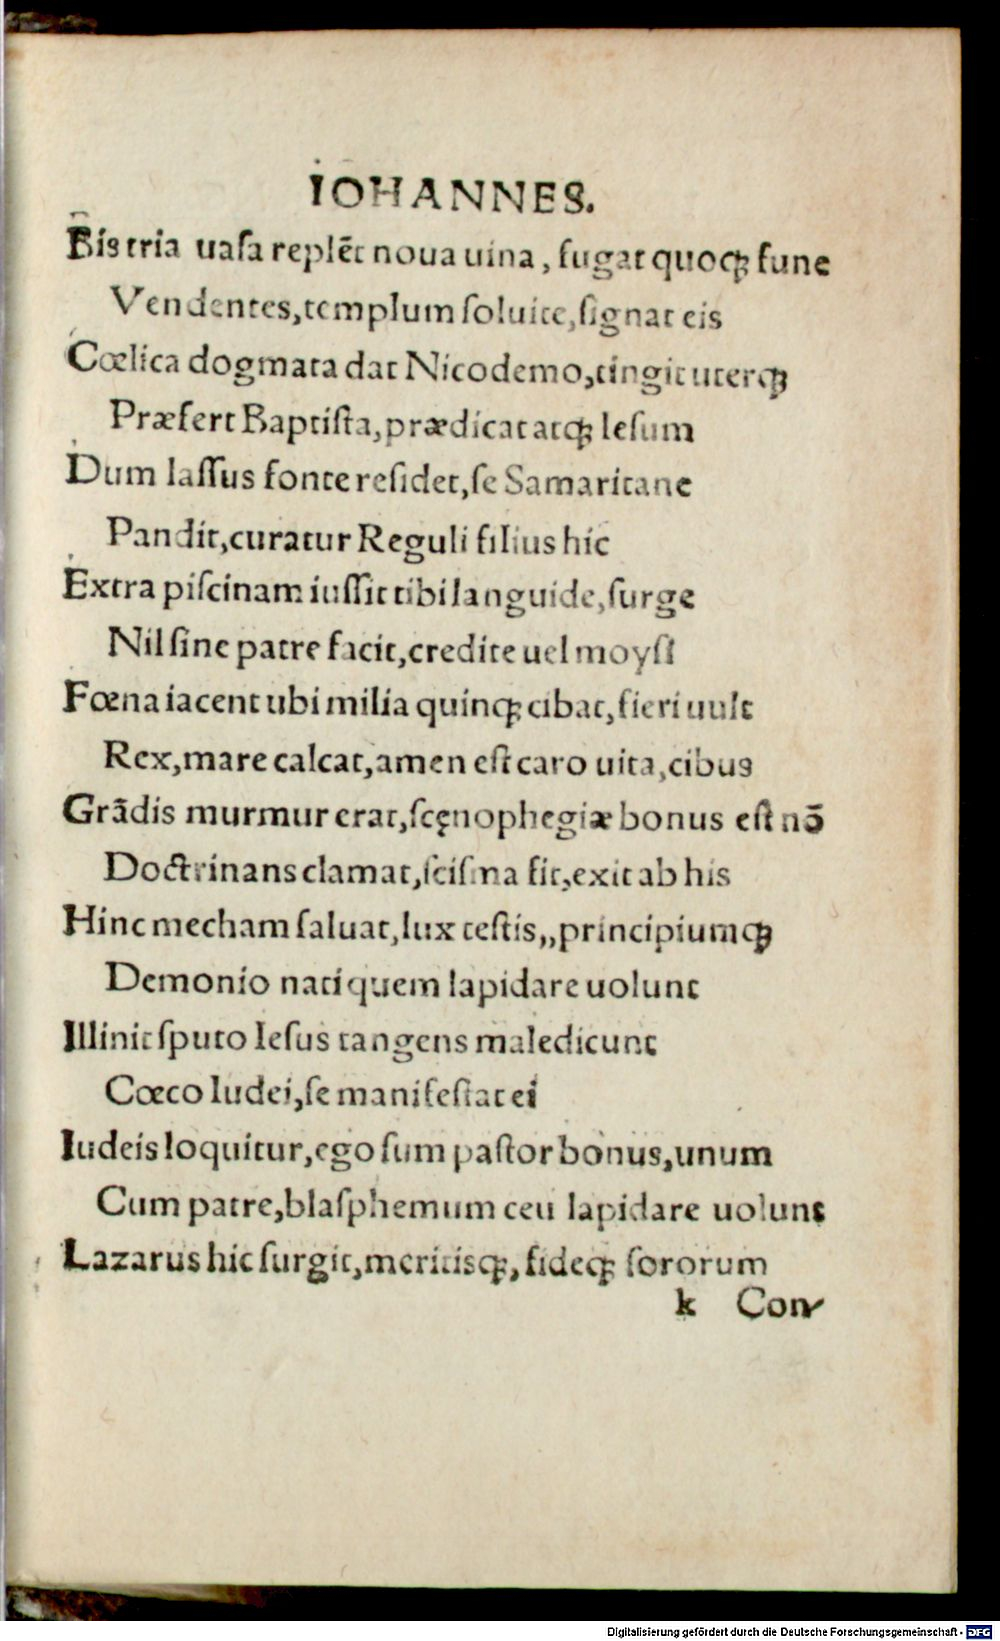 IOHANNES.
Bis tria uasa replēt noua uina, fugat quoqꝫ fune
Vendentes,templum soluite,signat eis
Cœlica dogmata dat Nicodemo,tingit uterqꝫ
Præfert Baptista,prædicat atqꝫ Iesum
Dum lassus fonte residet,se Samaritane
Pandit,curatur Reguli filius hic
Extra piscinam iussit tibi languide,surge
Nil sine patre facit,credite uel moysi
Fœna iacent ubi milia quinqꝫ cibat,fieri uult
Rex,mare calcat,amen est caro uita,cibus
Grādis murmur erat,scęnophegiæ bonus est nō
Doctrinans clamat,scisma fit,exit ab his
Hinc mecham saluat,lux testis,,principiumqꝫ
Demonio nati quem lapidare uolunt
Illinit sputo Iesus tangens maledicunt
Cœco Iudei,se manifestat ei
Iudeis loquitur,ego sum pastor bonus,unum
Cum patre,blasphemum ceu lapidare uolunt
Lazarus hic surgit,meritisqꝫ, fideqꝫ sororum
k Con-
Digitalisierung gefördert durch die Deutsche Forschungsgemeinschaft - DFG